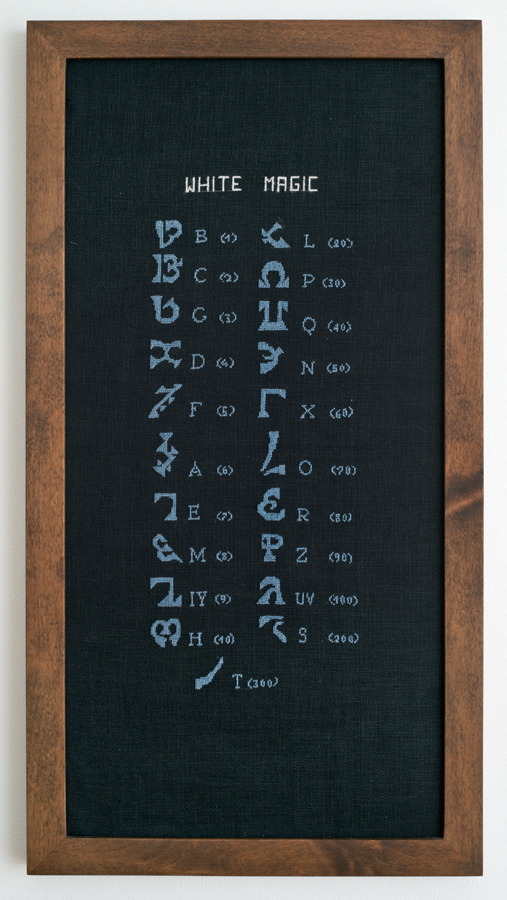 WHITE MAGIC
B (1) L (20)
C (2) P (30)
G (3) Q (40)
D (4) N (50)
F (5) X (60)
A (6) O (70)
E (7) R (80)
M (8) Z (90)
IY (9) UV (100)
H (10) S (200)
T (300)